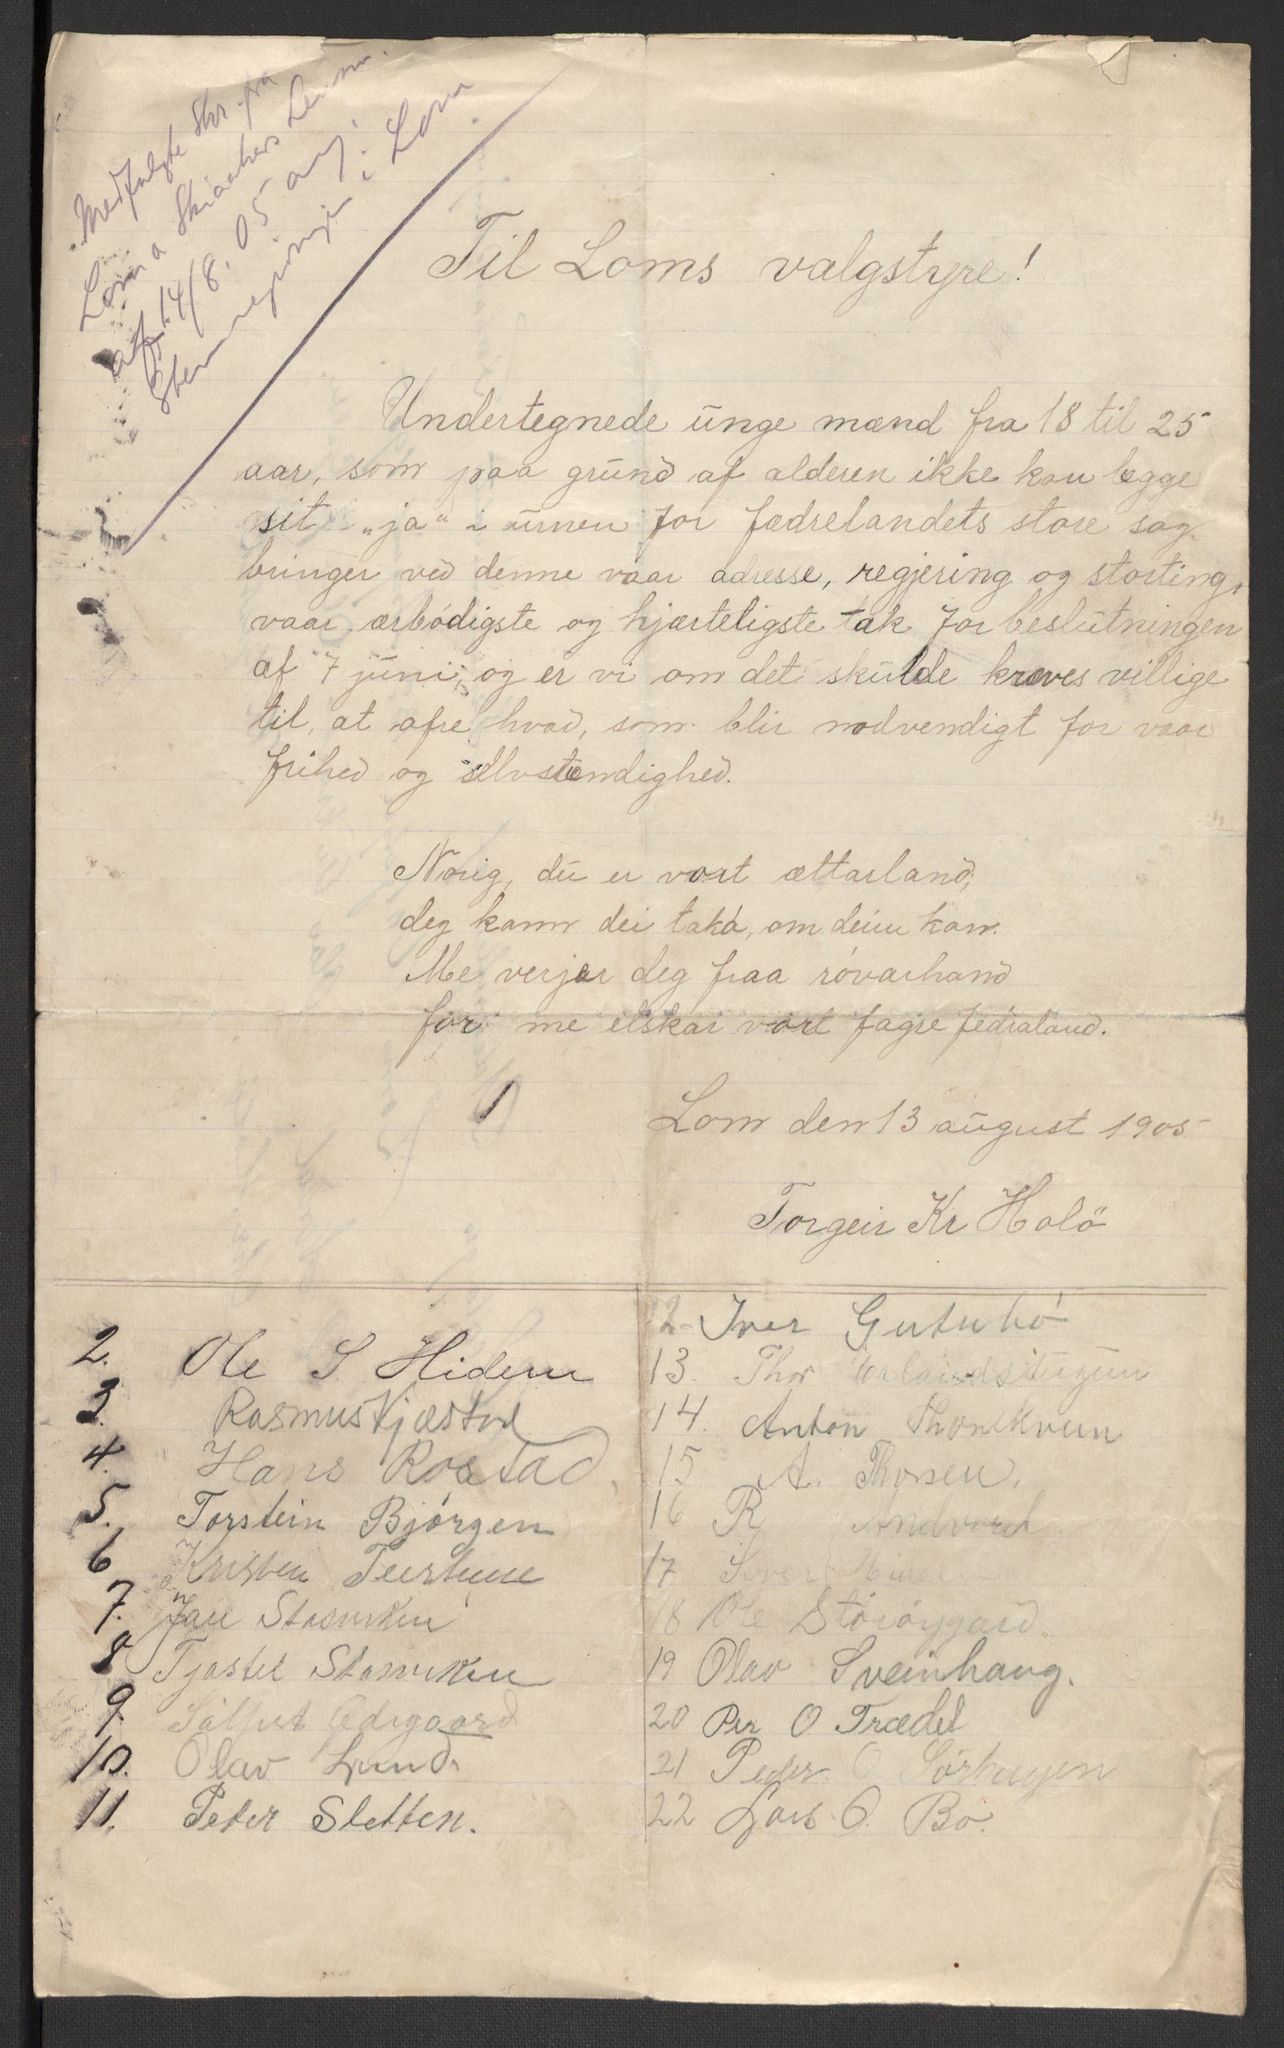 Medfulgte skr. fra
Lom a Skiaakers Lensm.
af 14/8. 05 ang.
Stemmegivningen i Lom
Til Loms valgstyre!
Undertegnede unge mænd fra 18 til 25
aar, som paa grund af alderen ikke kan lægge
sit „ja“ i urnen for fædrelandets store sag
bringer ved denne vaar adresse, regjering og storting,
vaar ærbødigste og hjærteligste tak for beslutningen
af 7 juni, og er vi om det skulde kræves villige
til, at ofre hvad, som blir nødvendigt for vaar
frihed og selvstændighed.
Norig, du er vort ættarland,
deg kann dei taka, om deim kan.
Me verjar deg fraa røvarhand
for me elskar vort fagre fedraland.
1
Lom den 13 august 1905
Torgeir Kr Holö
2. Ole S Hidem
3. Rasmus Kjæstad
4. Hans Rostad
5. Torstein Bjørgen
6 Kristen
7. Jan Stamsten
8 Tjostel
9. Odegaard
10. Olav Lund
11. Peter Sletten.
12 Iver Gutubø
13. Thor
14. Anton
15 A. Thorsen.
16 R Andvord
17
18 Ole Storøygard
19 Olav Sveinhaug.
20 Per O Trædet
21 Peder O Sörhagen
22 Lars O. Bø.